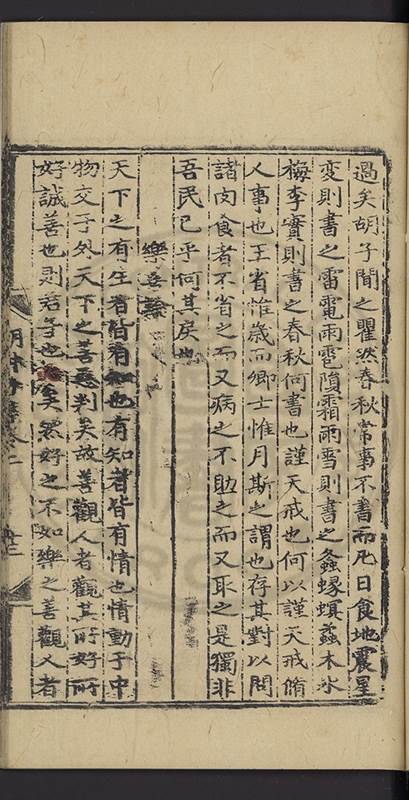 過矣胡子聞之瞿然春秋常事不書而凡日食地震星
変則書之雷電雨雹隕霜雨雪則書之螽蝝蜞螽木冰
梅李實則書之春秋何書也謹天戒也何以謹天戒脩
人事也王省惟歳而卿士惟月斯之謂也存其對以問
諸肉食者不省之而又病之不助之而又耴之是獨非
吾民已乎何其戾也
樂善
天下之有生者皆有知也有知者皆有情也情動于中
物交于外天下之善惡判矣故善觀人者觀其所好所
好誠善也則君子也矣然好之不如樂之善觀人者